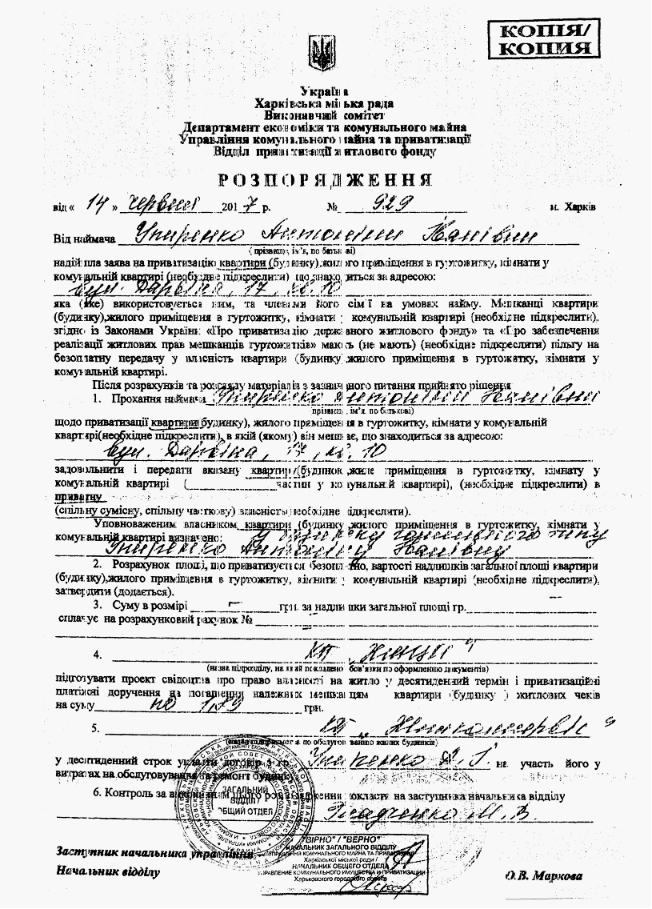 КОПІЯ/
КОПИЯ
Україна
Харківська міська рада
Виконавчий комітет
Департамент економіки та комунального майна
Управління комунального майна та приватизації
Відділ приватизації житлового фонду
РОЗПОРЯДЖЕННЯ
від « 14 » червня 2017 р. № 929 м. Харків
Від наймача
( прізвище, ім'я, по батькові)
надійшла заява на приватизацію квартири (будинку),жилого приміщення в гуртожитку, кімнати у
комунальній квартирі (необхідне підкреслити) що знаходиться за адресою:
вул. Дарвіна, 17, кв. 10
яка (яке) використовується ним, та членами його сім'ї на умовах найму. Мешканці квартири
(будинку),жилого приміщення в гуртожитку, кімнати у комунальній квартирі (необхідне підкреслити),
згідно із Законами України: «Про приватизацію державного житлового фонду» та «Про забезпечення
реалізації житлових прав мешканців гуртожитків» мають (не мають) (необхідне підкреслити) пільгу на
безоплатну передачу у власність квартири (будинку),жилого приміщення в гуртожитку, кімнати у
комунальній квартирі.
Після розрахунків та розгляду матеріалів з зазначеного питання прийнято рішення
1. Прохання наймача
прізвище, ім'я, по батькові)
щодо приватизації квартири(будинку), жилого приміщення в гуртожитку, кімнати у комунальній
квартирі(необхідне підкреслити), в якій (якому) він мешкає, що знаходиться за адресою:
вул. Дарвіна, 17, кв. 10
задовольнити і передати вказану квартиру(будинок,жиле приміщення в гуртожитку, кімнату у
комунальній квартирі ( частин у комунальній квартирі), (необхідне підкреслити) в
приватну
(спільну сумісну, спільну часткову) власність(необхідне підкреслити).
Уповноваженим власником квартири (будинку жилого приміщення в гуртожитку, кімнати у
комунальній квартирі визначено:
2. Розрахунок площі, що приватизується безоплатно, вартості надлишків загальної площі квартири
(будинку),жилого приміщення в гуртожитку, кімнати у комунальній квартирі (необхідне підкреслити),
затвердити (додається).
3. Суму в розмірі — грн. за надлишки загальної площі гр.
сплачує на розрахунковий рахунок №
4. КП
(назва підрозділу, на який покладено обов'язки по оформленню документів)
підготувати проект свідоцтва про право власності на житло у десятиденний термін і приватизаційні
платіжні доручення на погашення належних мешканцям квартири (будинку ) житлових чеків
на суму по 1,79 грн.
5. КП
у десятиденний строк укласти договір з гр. на участь його у
витратах на обслуговування та ремонт будинку
6. Контроль за виконанням цього розпорядження покласти на заступника начальника відділу
ЗАГАЛЬНИЙ
ВІДДІЛ
ОБЩИЙ ОТДЕЛ
"ВІРНО" / "ВЕРНО"
НАЧАЛЬНИК ЗАГАЛЬНОГО ВІДДІЛУ
УПРАВЛІННЯ КОМУНАЛЬНОГО МАЙНА ТА ПРИВАТИЗАЦІЇ
Харківської міської ради /
НАЧАЛЬНИК ОБЩЕГО ОТДЕЛА
УПРАВЛЕНИЕ КОММУНАЛЬНОГО ИМУЩЕСТВА И ПРИВАТИЗАЦИИ
Харьковского городского совета
Заступник начальника управління
Начальник відділу О.В. Маркова